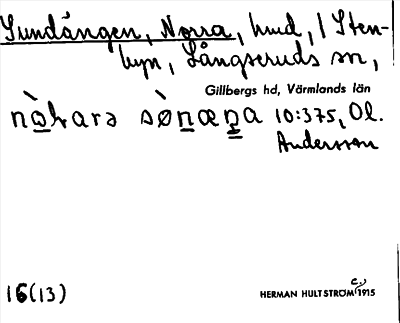 Sundängen, Norra, hmd, / Sten-
byn, Långseruds sn,
Gillbergs hd, Värmlands län
nò̱karə sø̀ṉæṉa 10:375, Ol.
Andersson
16(13)
HERMAN HULTSTRÖM c. 1915